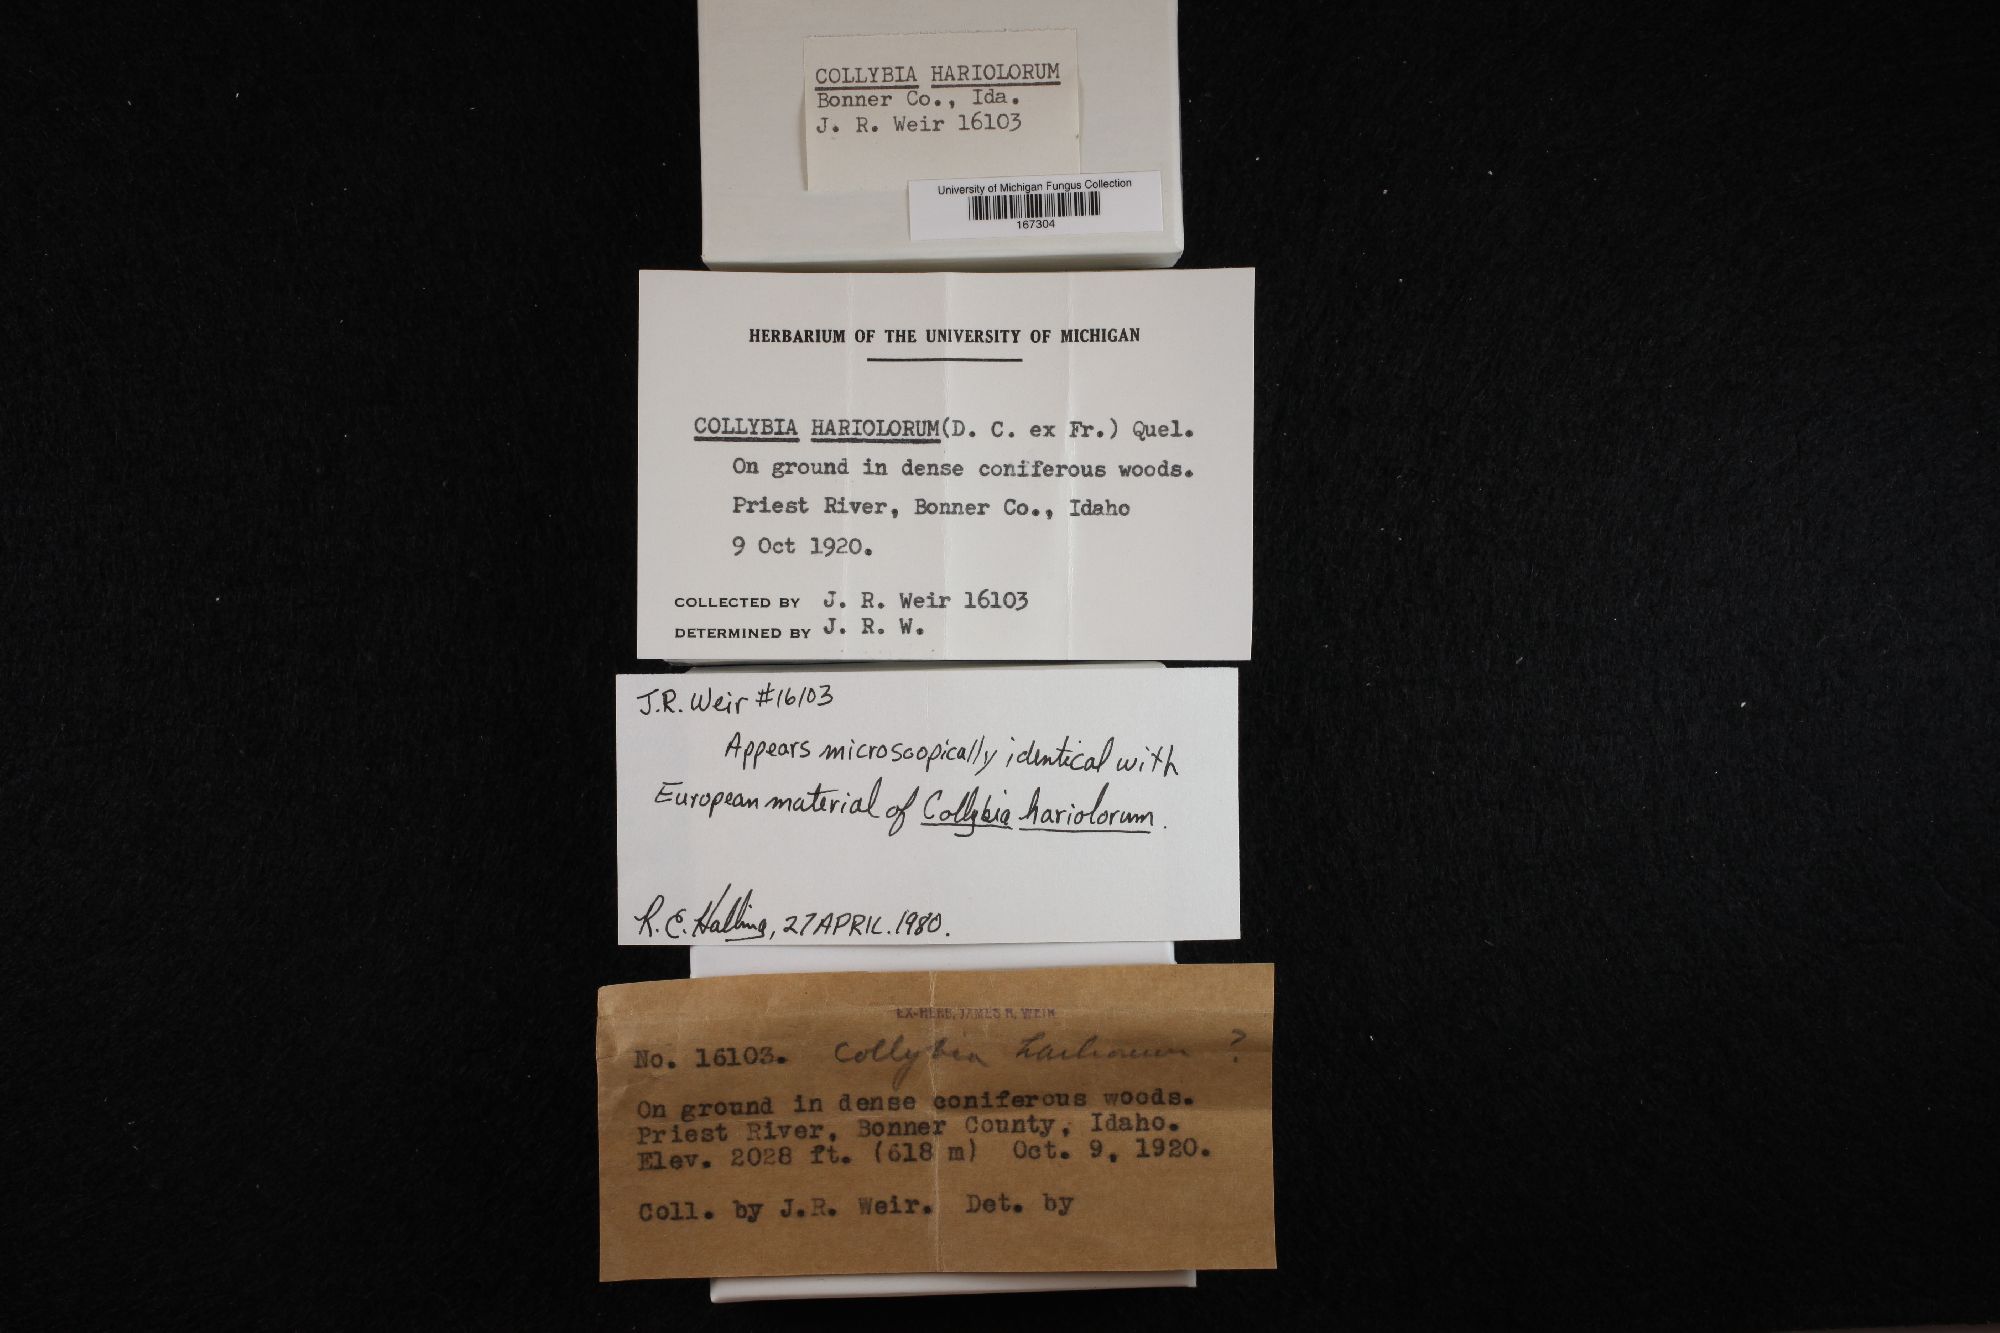 COLLYBIA HARIOLORUM
Bonner Co., Ida.
J. R. Weir 16103
University of Michigan Fungus Collection
167304
HERBARIUM OF THE UNIVERSITY OF MICHIGAN
COLLYBIA HARIOLORUM(D. C. ex Fr.) Quel.
On ground in dense coniferous woods.
Priest River, Bonner Co., Idaho
9 Oct 1920.
COLLECTED BY J. R. Weir 16103
DETERMINED BY J. R. W.
J.R. Weir #16103
Appears microscopically identical with
European material of Collybia hariolorum.
R. E. Halling, 27 APRIL. 1980.
EX-HERB. JAMES R. WEIR
No. 16103. Collybia ?
On ground in dense coniferous woods.
Priest River, Bonner County, Idaho.
Elev. 2028 ft. (618 m) Oct. 9, 1920.
Coll. by J.R. Weir. Det. by